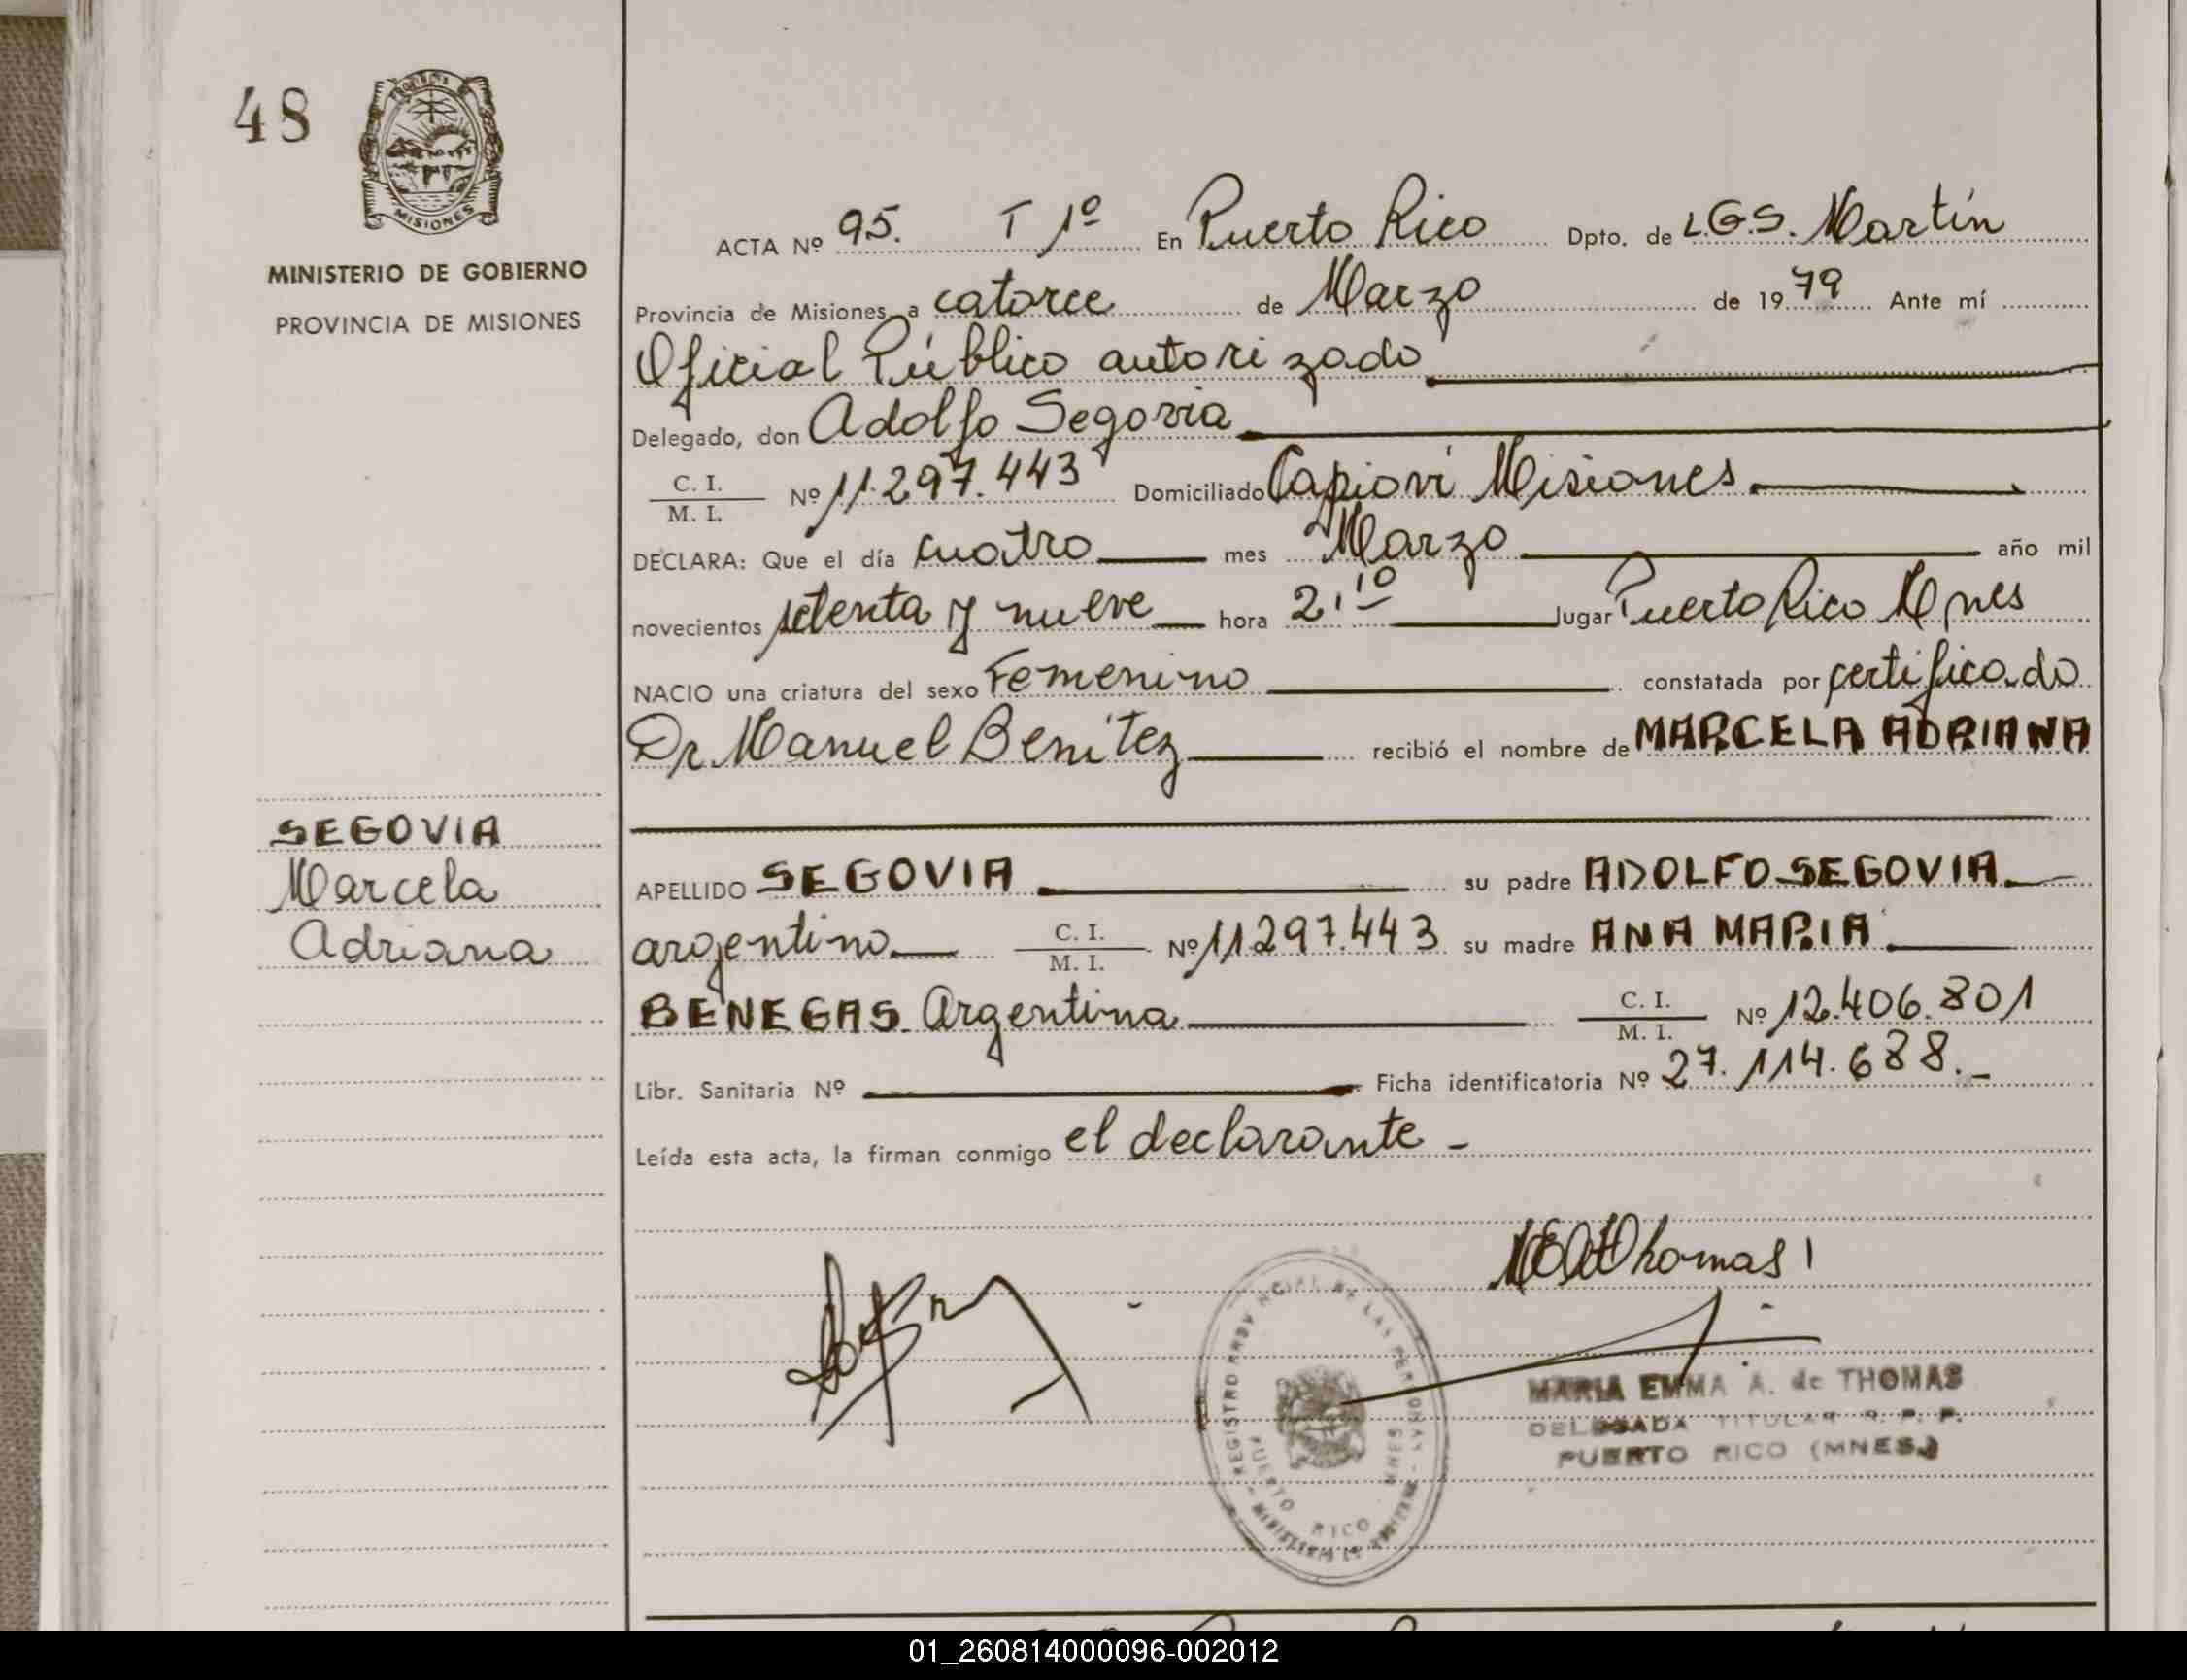 48
MISIONES
MINISTERIO DE GOBIERNO
PROVINCIA DE MISIONES
ACTA Nº 95. T 1º En Puerto Rico Dpto. de L.G.S. Martín
Provincia de Misiones a catorce de Marzo de 1979 Ante mí
Oficial Público autorizado
Delegado, don Adolfo Segovia
C. I. / M. I. Nº 11.297.443 Domiciliado Capioví Misiones
DECLARA: Que el día cuatro mes Marzo año mil
novecientos setenta y nueve hora 2,10 lugar Puerto Rico Mnes
NACIO una criatura del sexo Femenino constatada por certificado
Dr Manuel Benítez recibió el nombre de MARCELA ADRIANA
SEGOVIA
Marcela
Adriana
APELLIDO SEGOVIA su padre ADOLFO SEGOVIA
argentino C. I. / M. I. Nº 11.297.443 su madre ANA MARIA
BENEGAS Argentina C. I. / M. I. Nº 12.406.801
Libr. Sanitaria Nº Ficha identificatoria Nº 27.114.688.-
Leída esta acta, la firman conmigo el declarante -
MEAThomas
REGISTRO PROVINCIAL DE LAS PERSONAS - MINISTERIO DE GOBIERNO
PUERTO RICO MNES
MARIA EMMA A. de THOMAS
DELEGADA TITULAR R. P. P.
PUERTO RICO (MNES.)
01_260814000096-002012